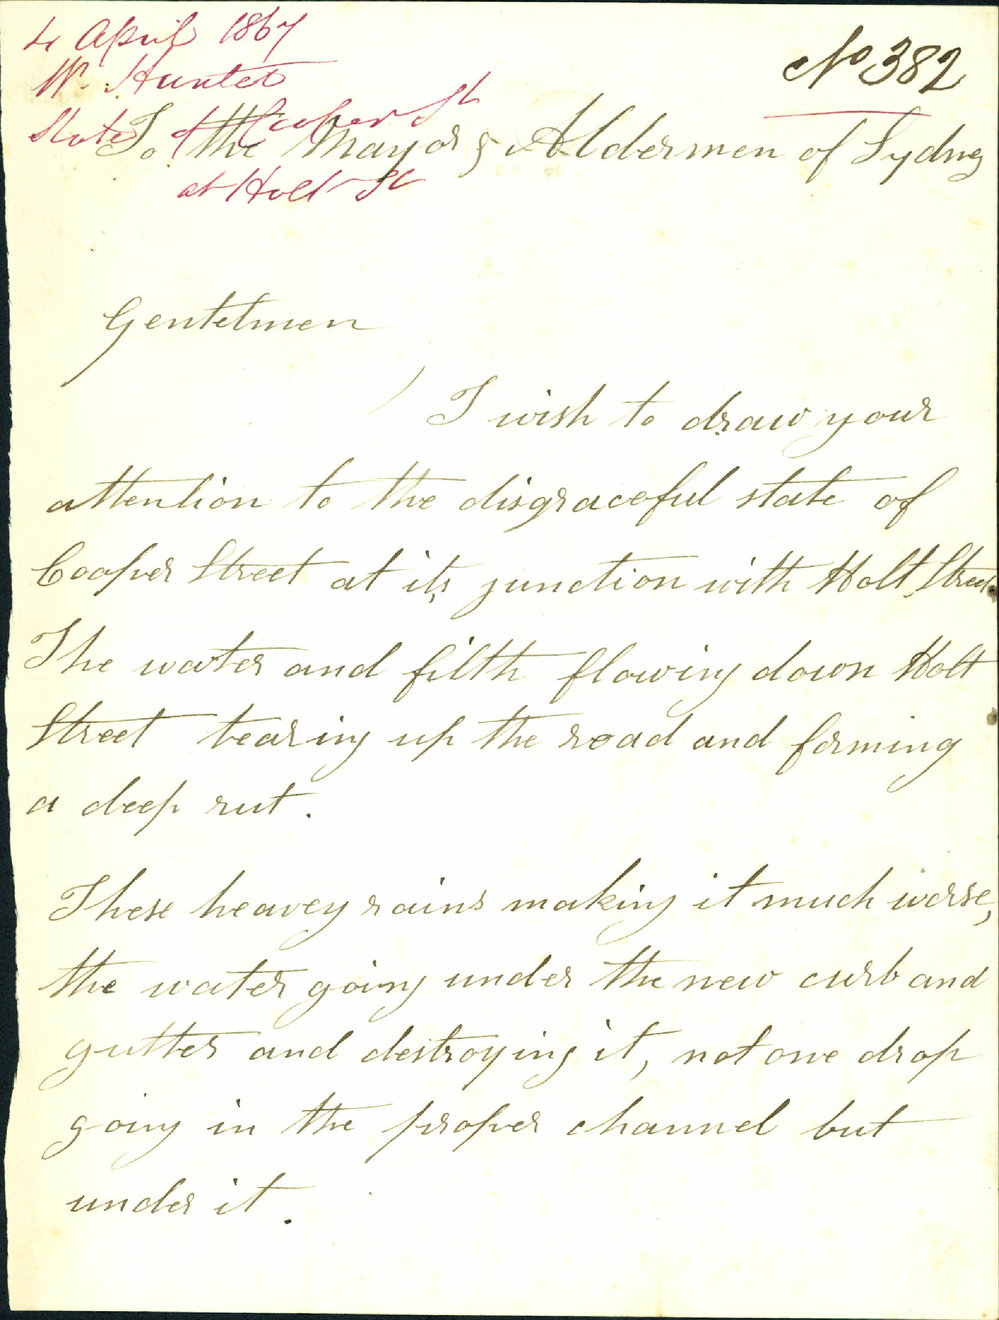 4 April 1867
No 382
W. Hunter
State of Cooper St
To the Mayor & Aldermen of Sydney
at Holt St
Gentelmen
I wish to draw your
attention to the disgraceful state of
Cooper Street at its junction with Holt Street
The water and filth flowing down Holt
Street tearing up the road and forming
a deep rut.
These heavey rains making it much worse,
the water going under the new curb and
gutter and destroying it, not one drop
going in the proper channel but
under it.